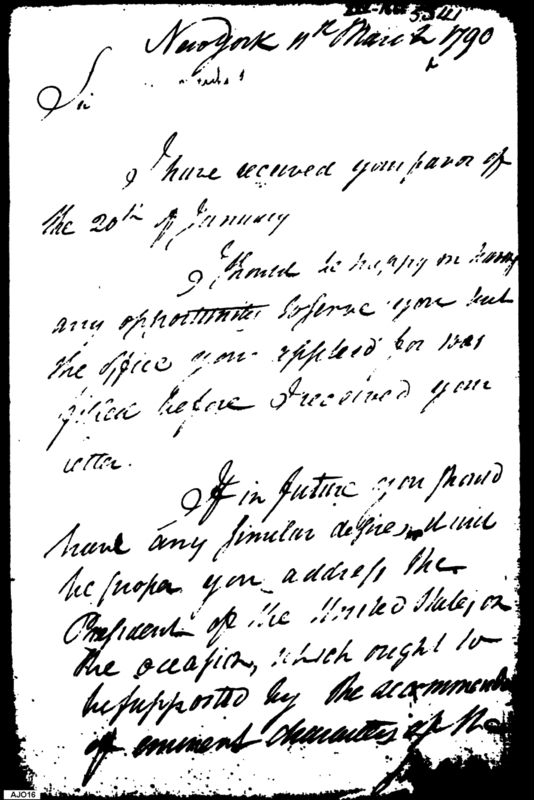 5541
New York 11th March 1790
Sir
I have received your favor of
the 20th of January
I should be happy on having
any opportunity to serve you but
the office you applied for was
filled before I received your
letter.
If in future you should
have any similar desires, it will
be proper you address the
President of the United States, on
the occasion, which ought to
be supported by the recommenda
of eminent characters of the
AJO16